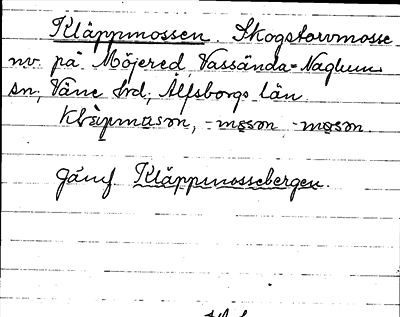 Kläppmossen. Skogstorvmosse
nv. på Möjered, Vassända-Naglum
sn, Väne hrd, Älfsborgs län.
Klæpmasən, -mɷsən -mosən.
Jämf Kläppmossebergen.